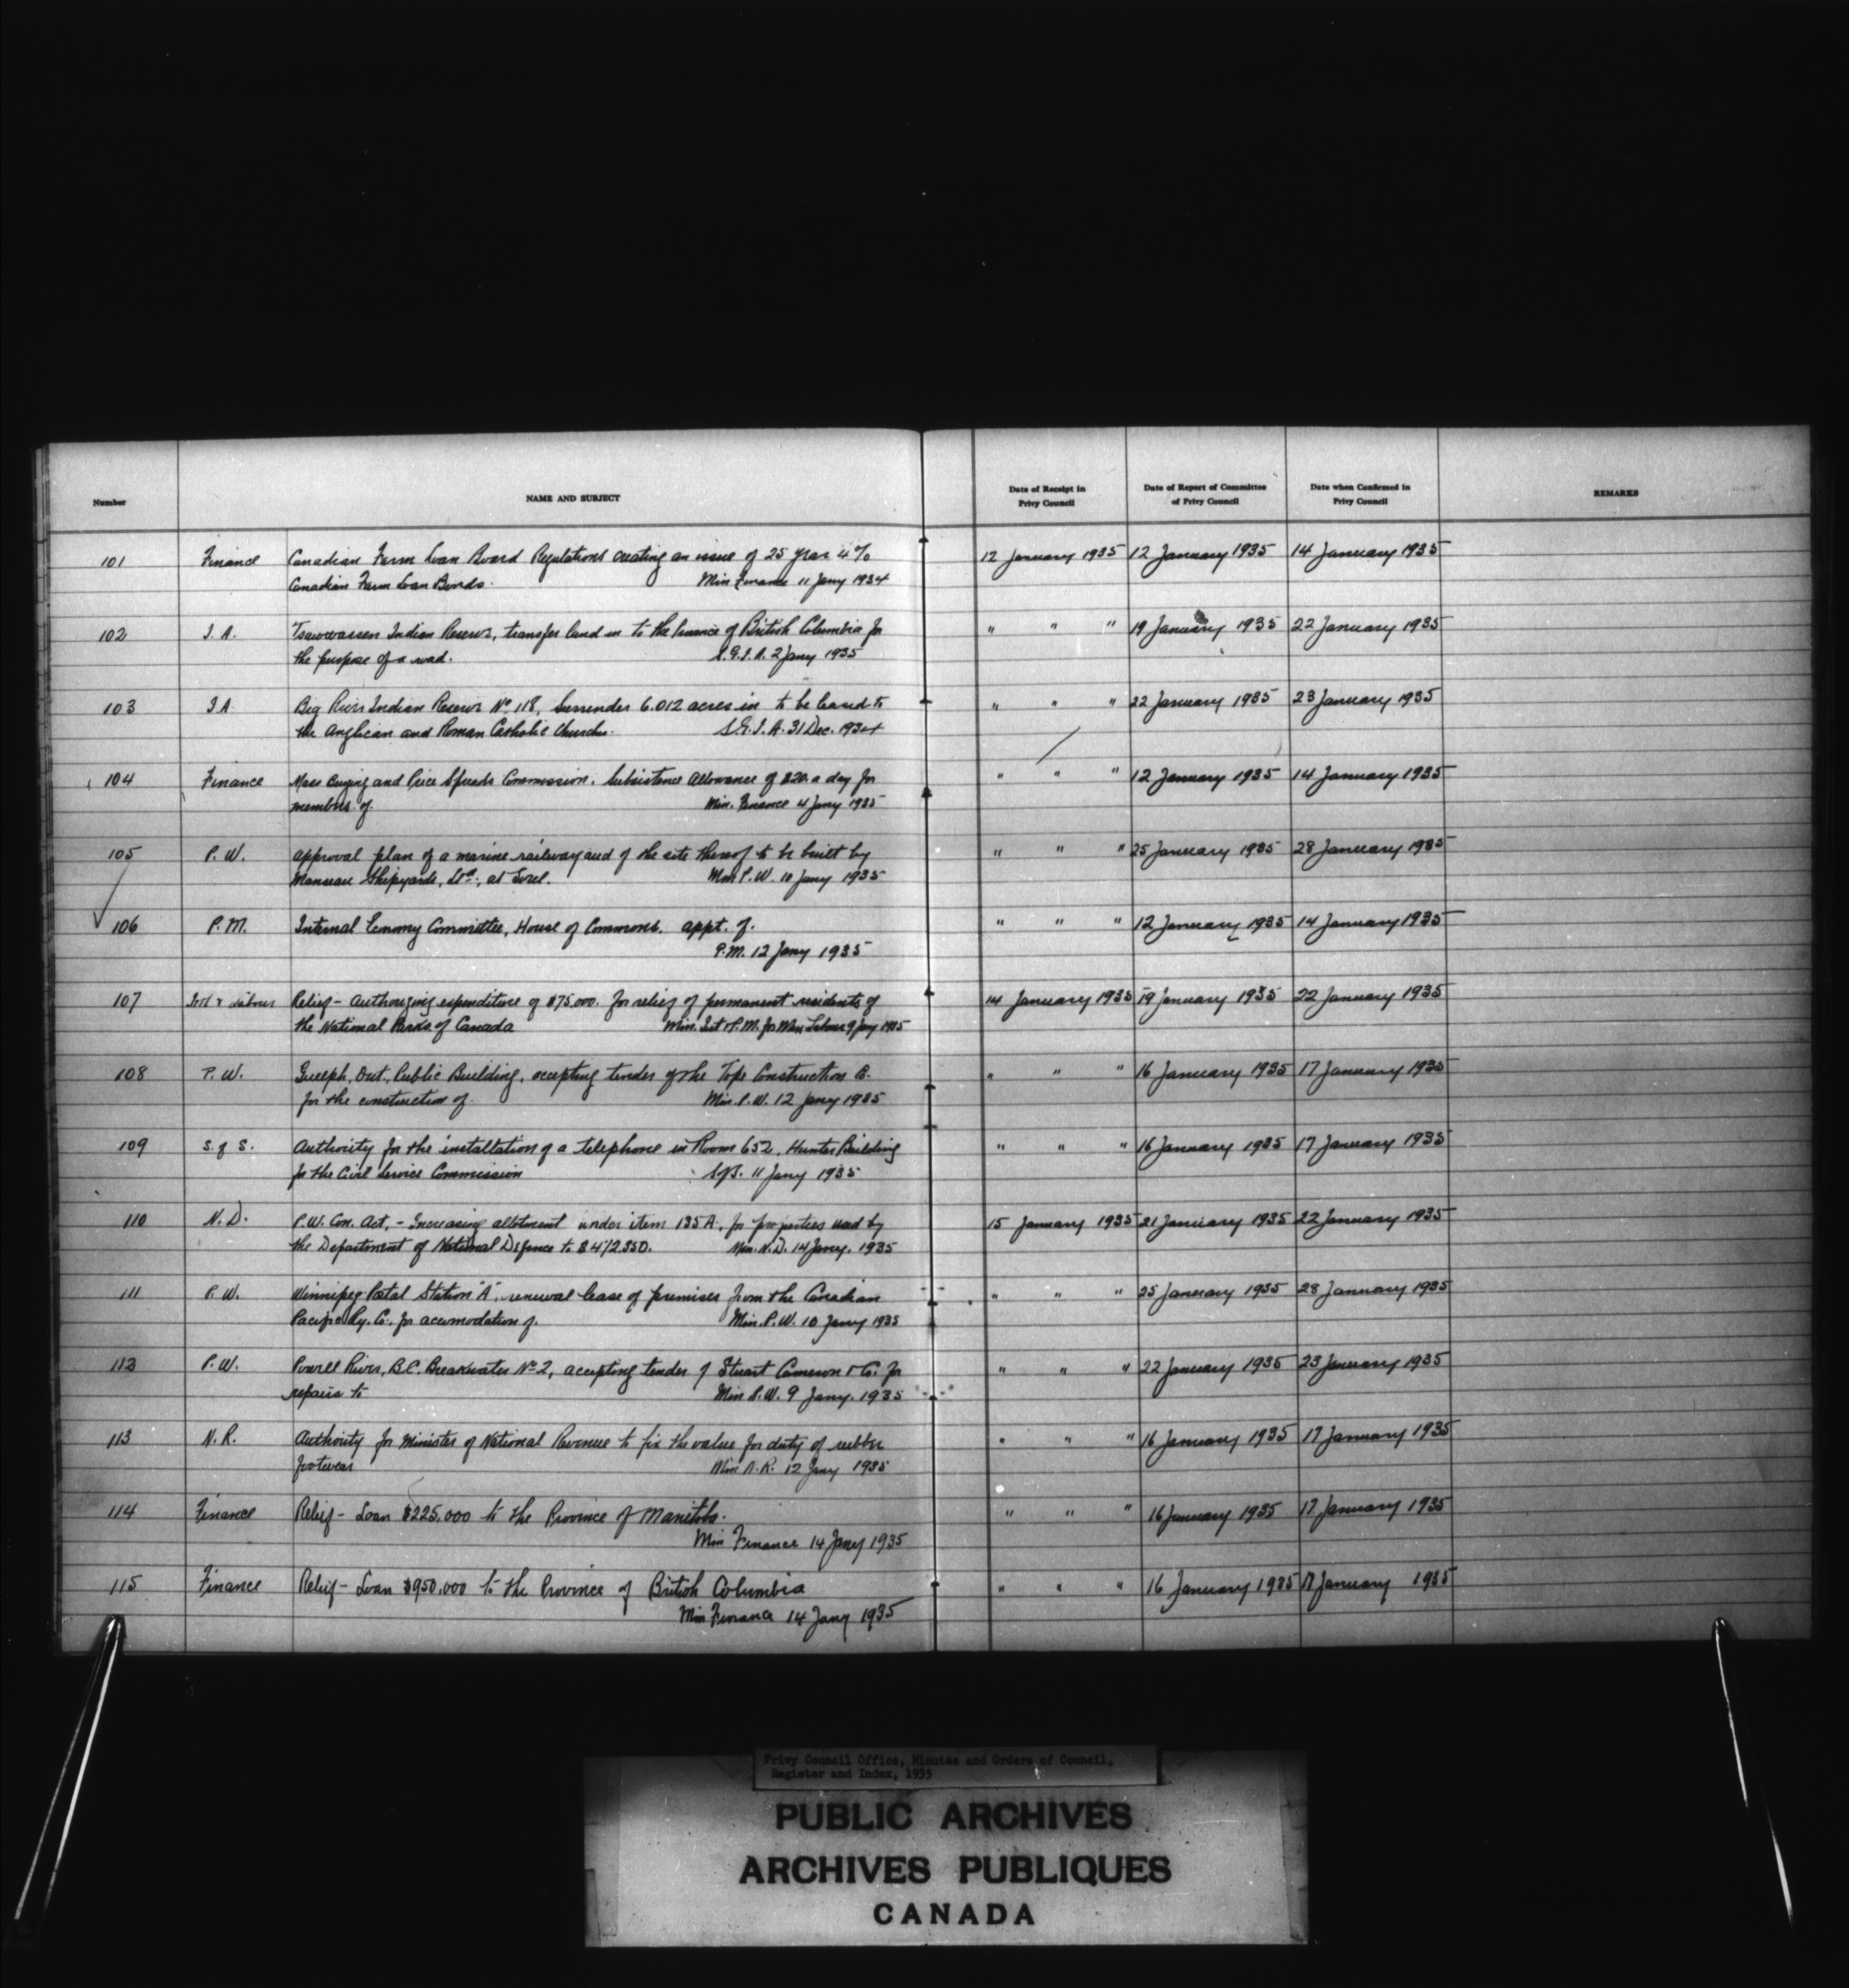 Number NAME AND SUBJECT Date of Receipt in Privy Council Date of Report of Committee of Privy Council Date when Confirmed in Privy Council REMARKS
101 Finance Canadian Farm Loan Board Regulations creating an issue of 25 year 4% 12 January 1935 12 January 1935 14 January 1935
Canadian Farm Loan Bonds. Min Finance 11 Jany 1934
102 I.A. Tsawwassen Indian Reserve, transfer land in to the Province of British Columbia for " " " 19 January 1935 22 January 1935
the purpose of a road. S.G.I.A. 2 Jany 1935
103 I.A. Big River Indian Reserve No 118, Surrender 6.012 acres in to be leased to " " " 22 January 1935 23 January 1935
the Anglican and Roman Catholic Churches. S.G.I.A. 31 Dec. 1934
104 Finance Mass Buying and Price Spreads Commission. Subsistence Allowance of $20. a day for " " " 12 January 1935 14 January 1935
members of. Min. Finance 4 Jany 1935
105 P.W. Approval plan of a marine railway and of the site thereof to be built by " " " 25 January 1935 28 January 1935
Manseau Shipyards, Ltd., at Sorel. Min P.W. 10 Jany 1935
106 P.M. Internal Economy Committee, House of Commons. appt. of. " " " 12 January 1935 14 January 1935
P.M. 12 Jany 1935
107 Int & Labour Relief - Authorizing expenditure of $75,000. for relief of permanent residents of 14 January 1935 19 January 1935 22 January 1935
the National Parks of Canada Min. Int & P.M. for Min Labour 9 Jany 1935
108 P.W. Guelph, Ont., Public Building, accepting tender of the Tope Construction Co. " " " 16 January 1935 17 January 1935
for the construction of Min. P.W. 12 Jany 1935
109 S. of S. Authority for the installation of a telephone in Room 652, Hunter Building " " " 16 January 1935 17 January 1935
for the Civil Service Commission SofS. 11 Jany 1935
110 N.D. P.W. Con. Act, - Increasing allotment under item 135A, for properties used by 15 January 1935 21 January 1935 22 January 1935
the Department of National Defence to $412.350. Min. N.D. 14 Jany. 1935
111 P.W. Winnipeg Postal Station "A", renewal lease of premises from the Canadian " " " 25 January 1935 28 January 1935
Pacific Ry. Co. for accomodation of. Min. P.W. 10 Jany 1935
112 P.W. Powell River, B.C. Breakwater No 2, accepting tender of Stuart Cameron & Co. for " " " 22 January 1935 23 January 1935
repairs to Min P.W. 9 Jany. 1935
113 N.R. Authority for Minister of National Revenue to fix the value for duty of rubber " " " 16 January 1935 17 January 1935
footwear Min N.R. 12 Jany 1935
114 Finance Relief - Loan $225,000 to the Province of Manitoba. " " " 16 January 1935 17 January 1935
Min Finance 14 Jany 1935
115 Finance Relief - Loan $950,000 to the Province of British Columbia " " " 16 January 1935 17 January 1935
Min Finance 14 Jany 1935
Privy Council Office, Minutes and Orders of Council,
Register and Index, 1935
PUBLIC ARCHIVES
ARCHIVES PUBLIQUES
CANADA